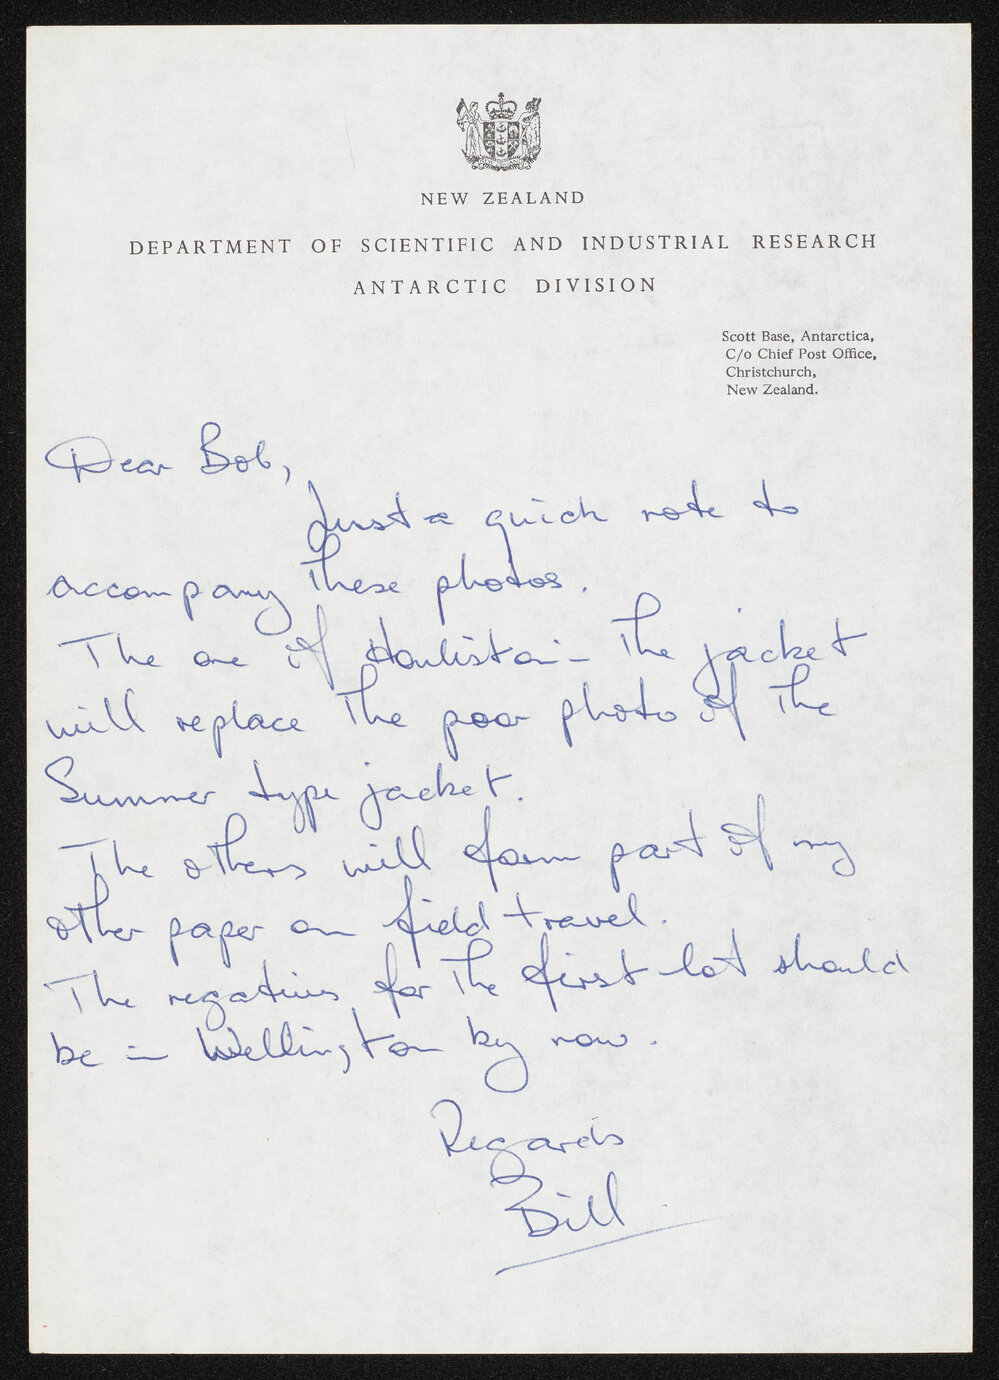 NEW ZEALAND
DEPARTMENT OF SCIENTIFIC AND INDUSTRIAL RESEARCH
ANTARCTIC DIVISION
Scott Base, Antarctica,
C/o Chief Post Office,
Christchurch,
New Zealand.
Dear Bob,
Just a quick note to
accompany these photos.
The one of in the jacket
will replace the poor photo of the
Summer type jacket.
The others will form part of my
other paper on field travel.
The negatives for the first lot should
be in Wellington by now.
Regards
Bill